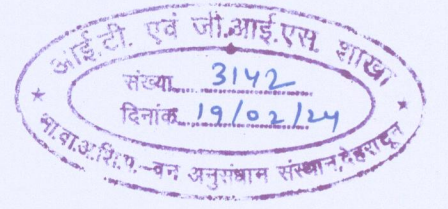 आई.टी. एवं जी.आई.एस. शाखा
संख्या 3142
दिनांक 19/02/24
भा.वा.अ.शि.प.-वन अनुसंधान संस्थान, देहरादून